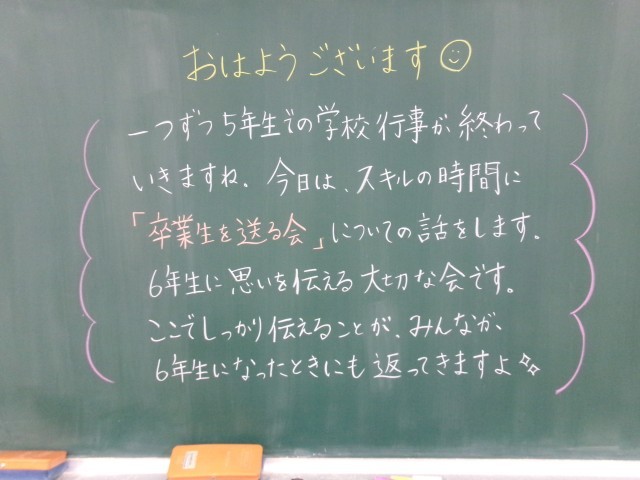 おはようございます
一つずつ5年生での学校行事が終わって
いきますね。今日は、スキルの時間に
「卒業生を送る会」についての話をします。
6年生に思いを伝える大切な会です。
ここでしっかり伝えることが、みんなが、
6年生になったときにも返ってきますよ